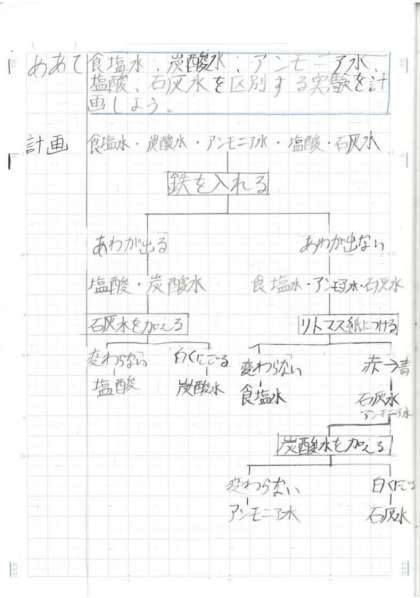 めあて 食塩水、炭酸水、アンモニア水、
塩酸、石灰水を区別する実験を計
画しよう。
計画 食塩水・炭酸水・アンモニア水・塩酸・石灰水
鉄を入れる
あわが出る あわが出ない
塩酸・炭酸水 食塩水・アンモニア水・石灰水
石灰水をかえる リトマス紙につける
変わらない 白くにごる 変わらない 赤→青
塩酸 炭酸水 食塩水 石灰水
アンモニア水
炭酸水をかえる
変わらない 白くにごる
アンモニア水 石灰水